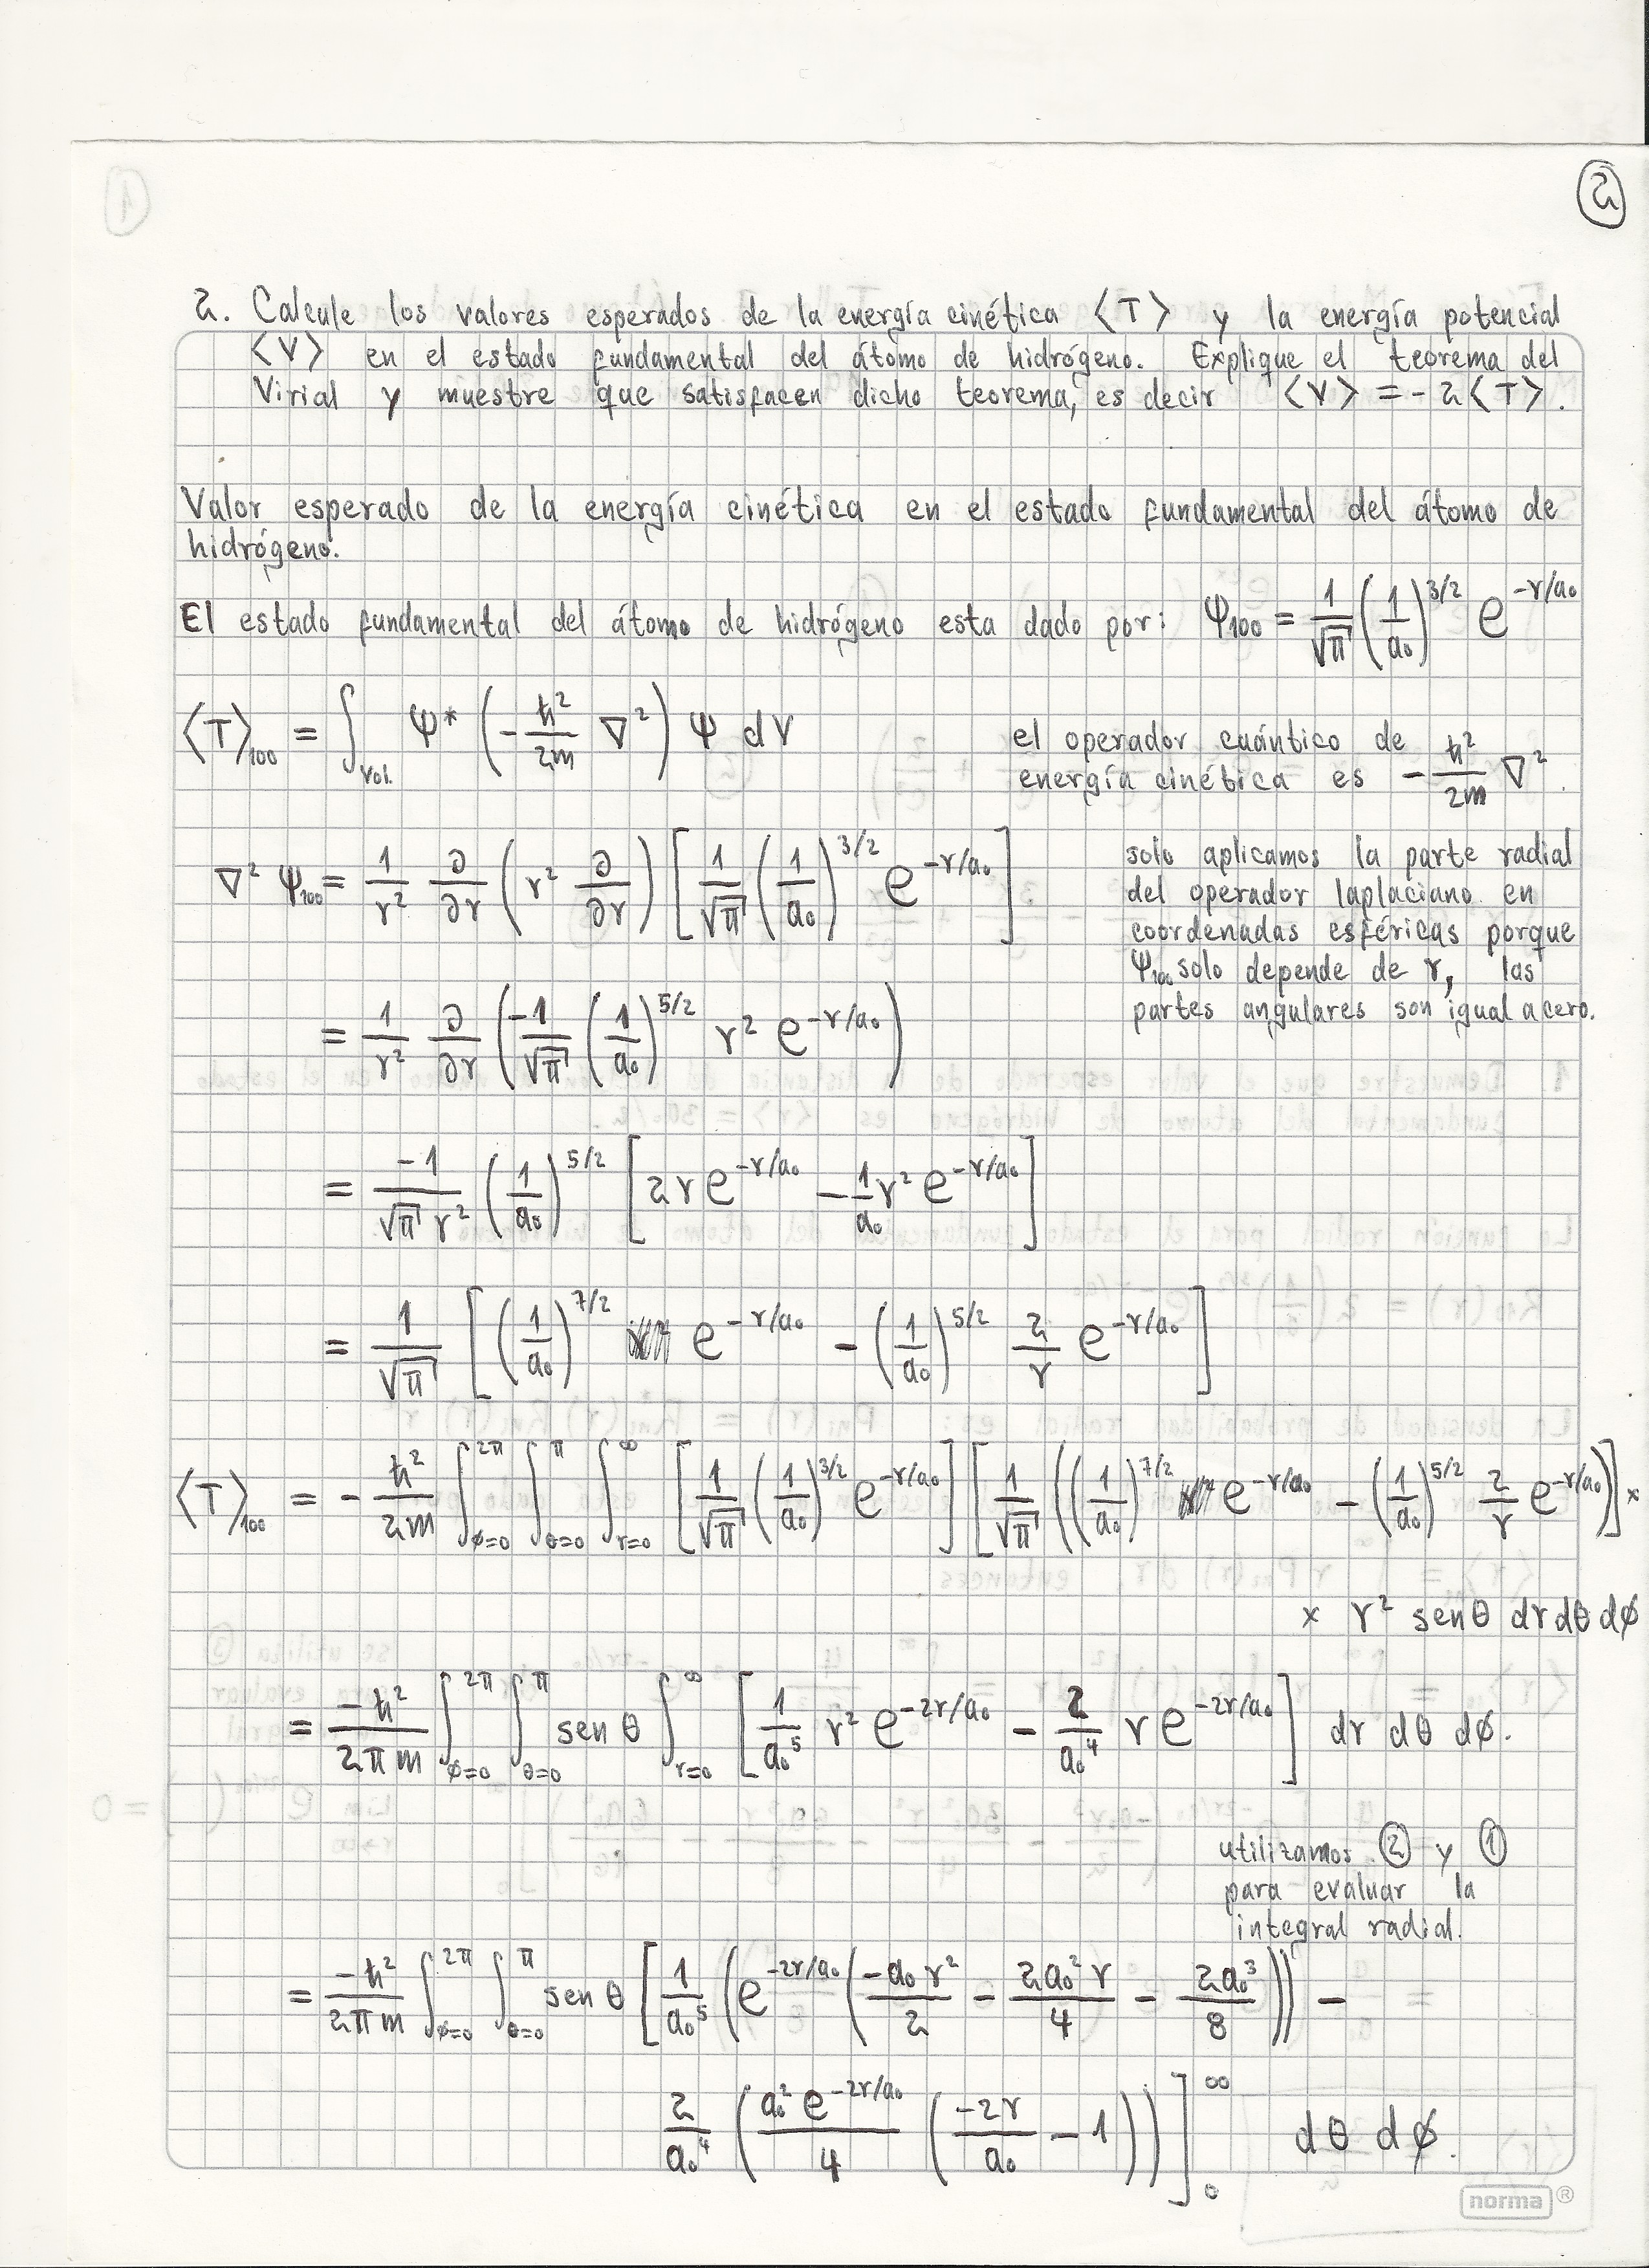 2
2. Calcule los valores esperados de la energía cinética ⟨T⟩ y la energía potencial
⟨V⟩ en el estado fundamental del átomo de hidrógeno. Explique el teorema del
Virial y muestre que satisfacen dicho teorema, es decir ⟨V⟩ = -2⟨T⟩.
Valor esperado de la energía cinética en el estado fundamental del átomo de
hidrógeno.
El estado fundamental del átomo de hidrógeno esta dado por: ψ₁₀₀ = 1/√π (1/a₀)^(3/2) e^(-r/a₀)
⟨T⟩₁₀₀ = ∫_Vol. ψ* (-ħ²/2m ∇²) ψ dV
el operador cuántico de
energía cinética es -ħ²/2m ∇².
∇² ψ₁₀₀ = 1/r² ∂/∂r (r² ∂/∂r) [1/√π (1/a₀)^(3/2) e^(-r/a₀)]
solo aplicamos la parte radial
del operador laplaciano en
coordenadas esféricas porque
ψ₁₀₀ solo depende de r, las
partes angulares son igual a cero.
= 1/r² ∂/∂r (-1/√π (1/a₀)^(5/2) r² e^(-r/a₀))
= -1/(√π r²) (1/a₀)^(5/2) [2r e^(-r/a₀) - 1/a₀ r² e^(-r/a₀)]
= 1/√π [(1/a₀)^(7/2) e^(-r/a₀) - (1/a₀)^(5/2) 2/r e^(-r/a₀)]
⟨T⟩₁₀₀ = -ħ²/2m ∫_{φ=0}^{2π} ∫_{θ=0}^{π} ∫_{r=0}^{∞} [1/√π (1/a₀)^(3/2) e^(-r/a₀)] [1/√π ((1/a₀)^(7/2) e^(-r/a₀) - (1/a₀)^(5/2) 2/r e^(-r/a₀))] ×
× r² sen θ dr dθ dφ
= -ħ²/(2πm) ∫_{φ=0}^{2π} ∫_{θ=0}^{π} sen θ ∫_{r=0}^{∞} [1/a₀⁵ r² e^(-2r/a₀) - 2/a₀⁴ r e^(-2r/a₀)] dr dθ dφ.
utilizamos ② y ①
para evaluar la
integral radial.
= -ħ²/(2πm) ∫_{φ=0}^{2π} ∫_{θ=0}^{π} sen θ [1/a₀⁵ (e^(-2r/a₀) (-a₀r²/2 - 2a₀²r/4 - 2a₀³/8)) -
2/a₀⁴ (a₀² e^(-2r/a₀)/4 (-2r/a₀ - 1))]₀^∞ dθ dφ.
norma®